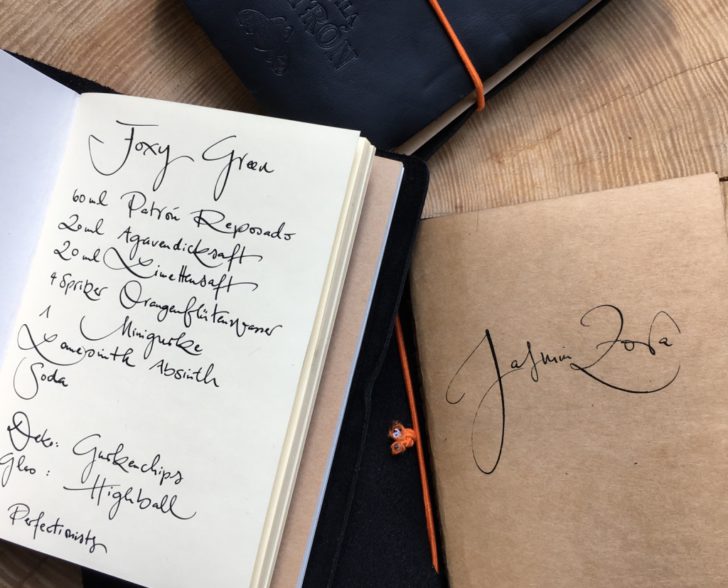 Foxy Green
60ml Patrón Reposado
20ml Agavendicksaft
20ml Limettensaft
4 Sprizer Orangenblütenwasser
1 Minigurke
Absinth
Soda
Deko: Gurkenchips
Glas: Highball
Perfectionists
TRÓN
Jasmin